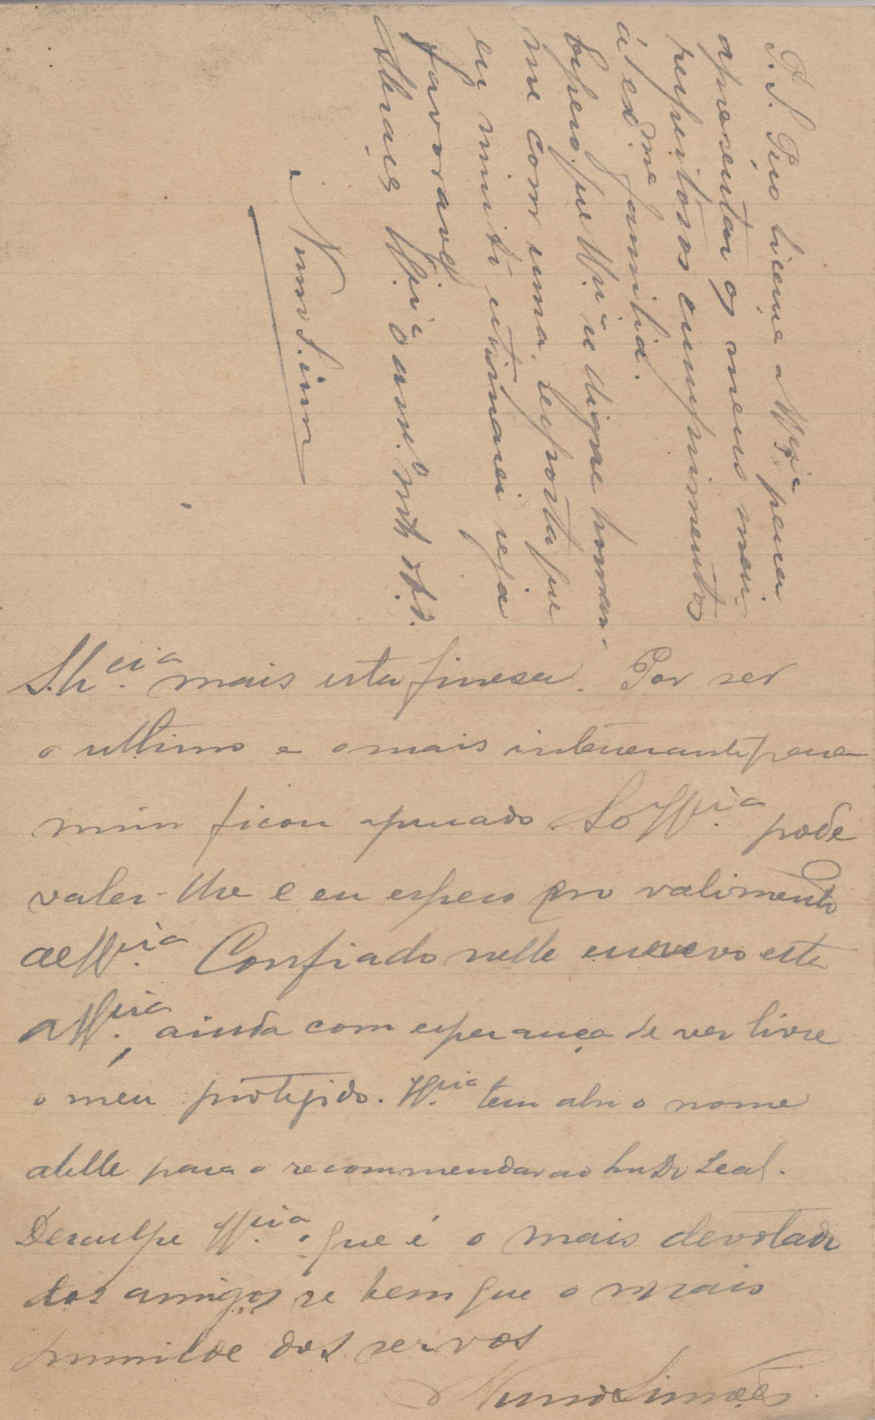 S.hcia mais esta finesa. Por ser
o ultimo e o mais interessante para
mim ficou apurado. Só Vª Exª pode
valer-lhe e eu espero pro valimento
de Vª Exª Confiado nelle escrevo esta
a Vª Exª, ainda com esperança de ver livre
o meu protegido. Vª Exª tem ahi o nome
delle para o recommendar ao Snr Dr Leal.
Desculpe Vª Exª que é o mais devotado
dos amigos se bem que o mais
humilde dos servos
Nuno Simões
P.S. Peço licença a Vª Exª para
apresentar os meus mais
respeitosos cumprimentos
á Exma familia.
Espero que Vª Exª se digne honrar-
me com uma resposta que
eu muito estimarei seja
favoravel
Abraça Vª Exª o amº mtº
Nuno Simões